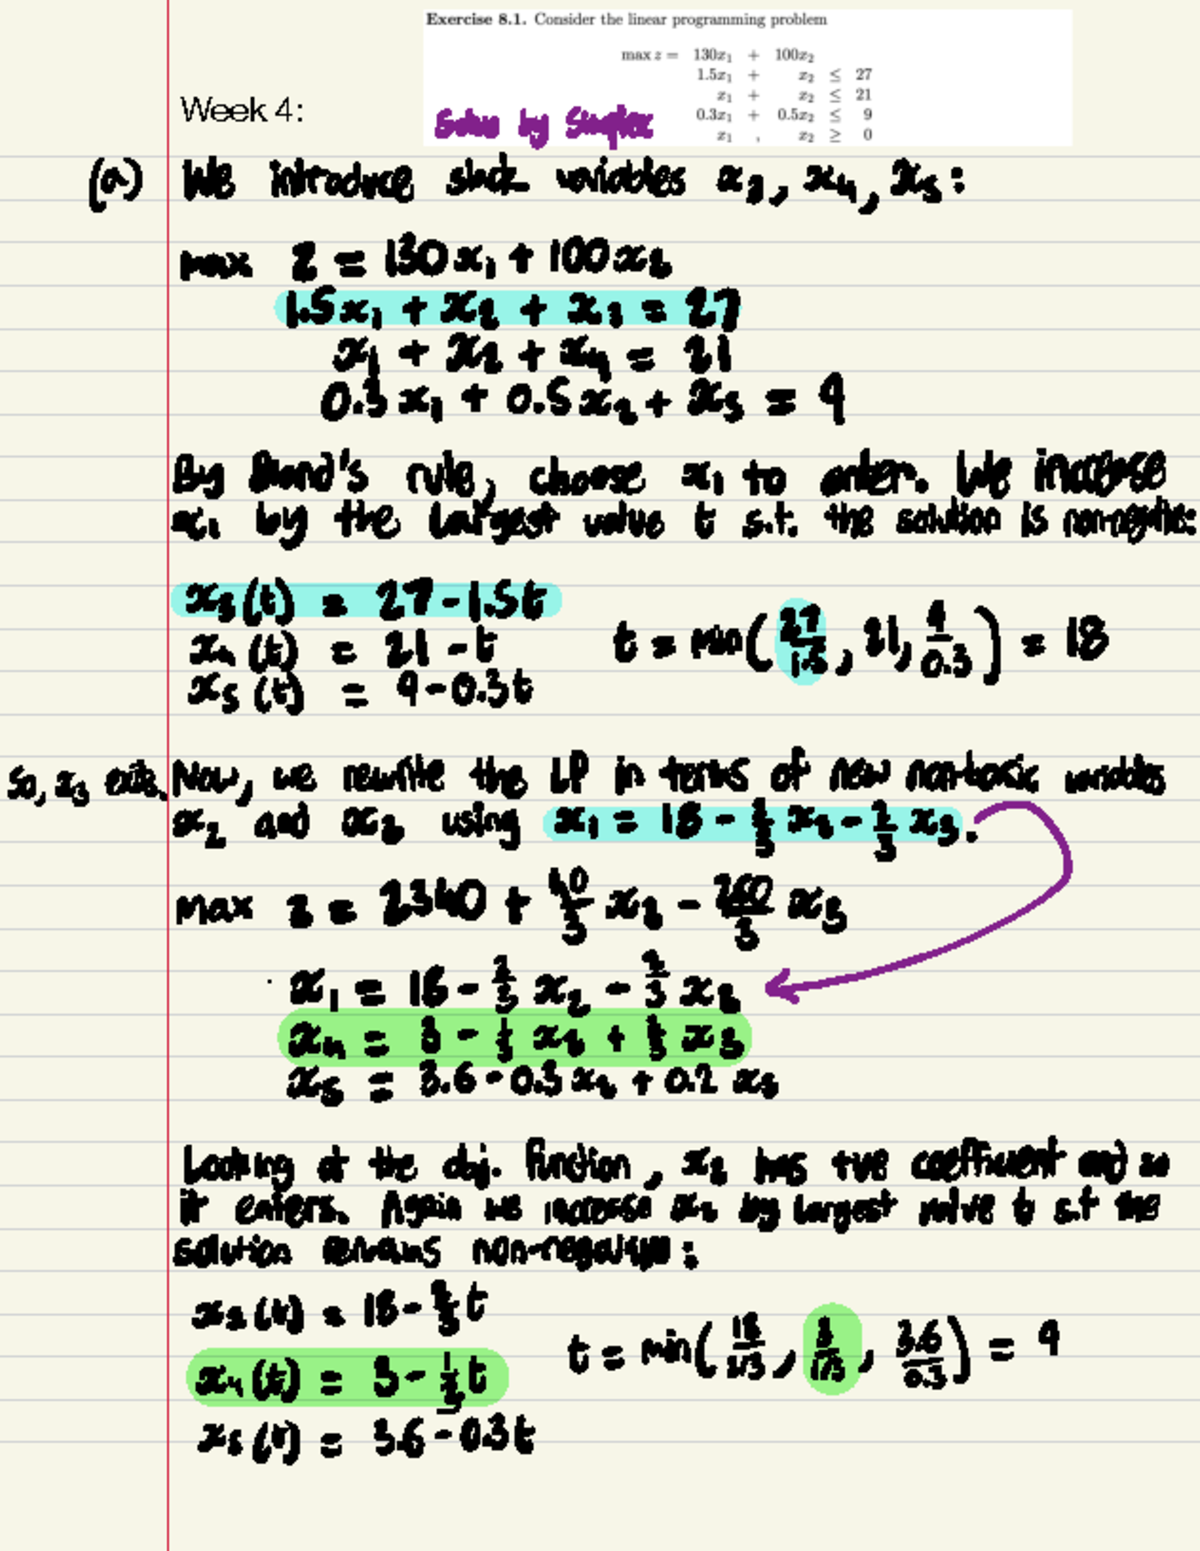 Exercise 8.1. Consider the linear programming problem
max z = 130x₁ + 100x₂
1.5x₁ + x₂ ≤ 27
x₁ + x₂ ≤ 21
0.3x₁ + 0.5x₂ ≤ 9
x₁ , x₂ ≥ 0
Week 4:
Solve by Simplex
(a) We introduce slack variables x₃, x₄, x₅:
max z = 130x₁ + 100x₂
1.5x₁ + x₂ + x₃ = 27
x₁ + x₂ + x₄ = 21
0.3x₁ + 0.5x₂ + x₅ = 9
By Bland's rule, choose x₁ to enter. We increase
x₁ by the largest value t s.t. the solution is non-negative:
x₃(t) = 27-1.5t
x₄(t) = 21-t
x₅(t) = 9-0.3t
t = min(27/1.5, 21, 9/0.3) = 18
So, x₃ exits. Now, we rewrite the LP in terms of new non-basic variables
x₂ and x₃ using x₁ = 18 - 2/3 x₂ - 2/3 x₃.
max z = 2340 + 40/3 x₂ - 260/3 x₃
x₁ = 18 - 2/3 x₂ - 2/3 x₃
x₄ = 3 - 1/3 x₂ + 2/3 x₃
x₅ = 3.6 - 0.3x₂ + 0.2x₃
Looking at the obj. function, x₂ has +ve coefficient and so
it enters. Again we increase x₂ by largest value t s.t the
solution remains non-negative:
(t) = 18 - 2/3 t
x₄(t) = 3 - 1/3 t
x₅(t) = 3.6 - 0.3t
t = min(18/2/3, 3/1/3, 3.6/0.3) = 9